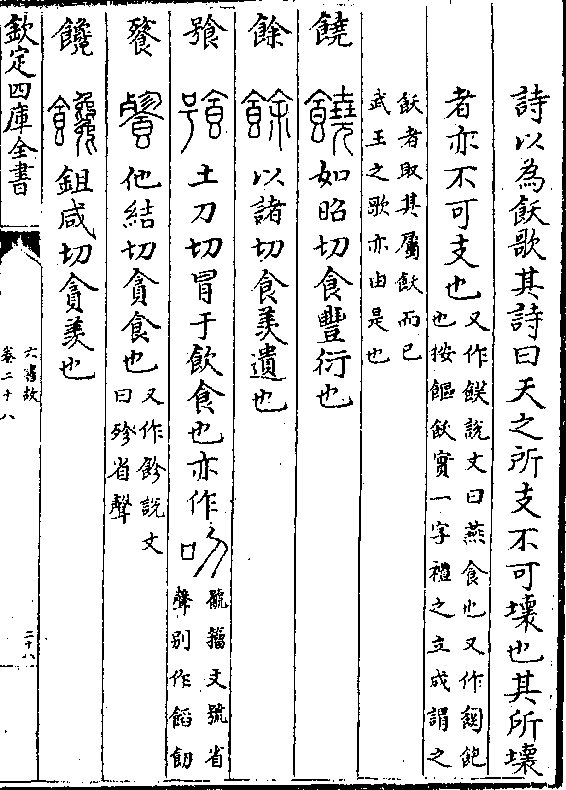 詩以為飫歌其詩曰天之所支不可壞也其所壞
者亦不可支也又作䬸說文曰燕食也又作䬶飽
也按饇飫實一字禮之立成謂之
飫者取其屬飫而已
武王之歌亦由是也
饒 如昭切食豐衍也
餘 以諸切食羨遺也
飸 土刀切冒于飲食也亦作叨 籀文號省
聲别作饀飭
餮 他結切貪食也又作飻說文
曰殄省聲
饞 鉏咸切貪羨也
欽定四庫全書
六書故
卷二十八
二十八